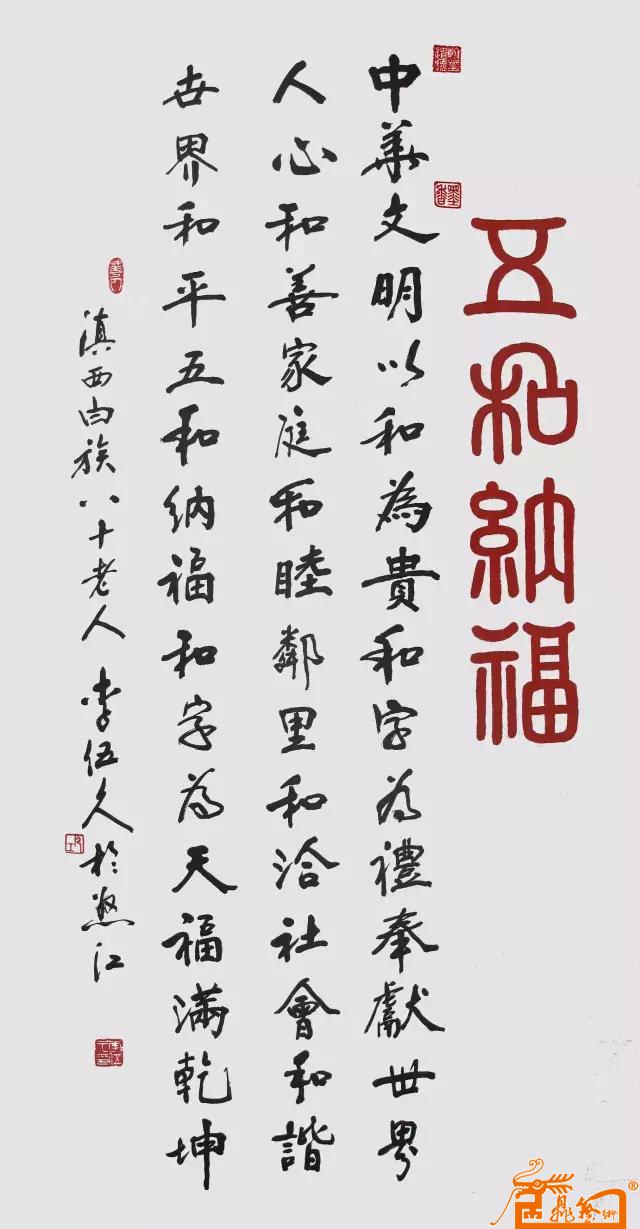 五和納福
中華文明以和為貴和字為禮奉獻世界
人心和善家庭和睦鄰里和洽社會和諧
世界和平五和纳福和字為天福满乾坤
滇西白族八十老人李伍久於怒江
鼎藝術